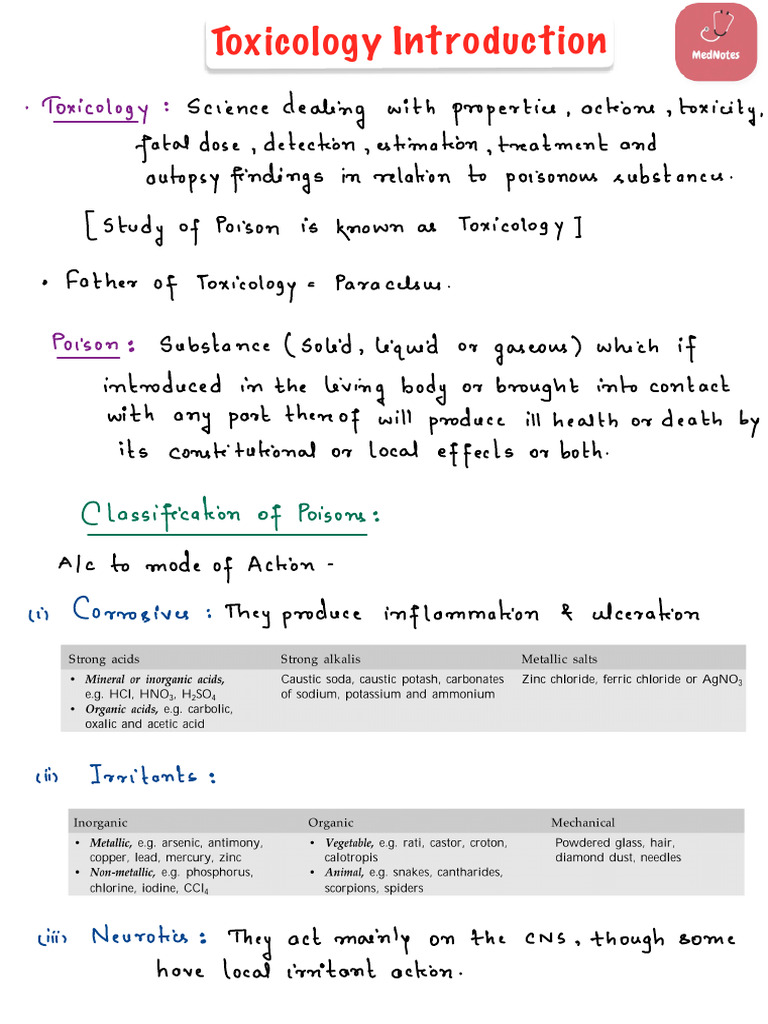 Toxicology Introduction
MedNotes
· Toxicology : Science dealing with properties, actions, toxicity,
fatal dose, detection, estimation, treatment and
autopsy findings in relation to poisonous substances.
[Study of Poison is known as Toxicology]
• Father of Toxicology = Paracelsus.
Poison : Substance (Solid, liquid or gaseous) which if
introduced in the living body or brought into contact
with any part thereof will produce ill health or death by
its constitutional or local effects or both.
Classification of Poisons :
A/c to mode of Action -
(i) Corrosives : They produce inflammation & ulceration
Strong acids Strong alkalis Metallic salts
• Mineral or inorganic acids, Caustic soda, caustic potash, carbonates Zinc chloride, ferric chloride or AgNO₃
e.g. HCl, HNO₃, H₂SO₄ of sodium, potassium and ammonium
• Organic acids, e.g. carbolic,
oxalic and acetic acid
(ii) Irritants :
Inorganic Organic Mechanical
• Metallic, e.g. arsenic, antimony, • Vegetable, e.g. rati, castor, croton, Powdered glass, hair,
copper, lead, mercury, zinc calotropis diamond dust, needles
• Non-metallic, e.g. phosphorus, • Animal, e.g. snakes, cantharides,
chlorine, iodine, CCl₄ scorpions, spiders
(iii) Neurotics : They act mainly on the CNS, though some
have local irritant action.